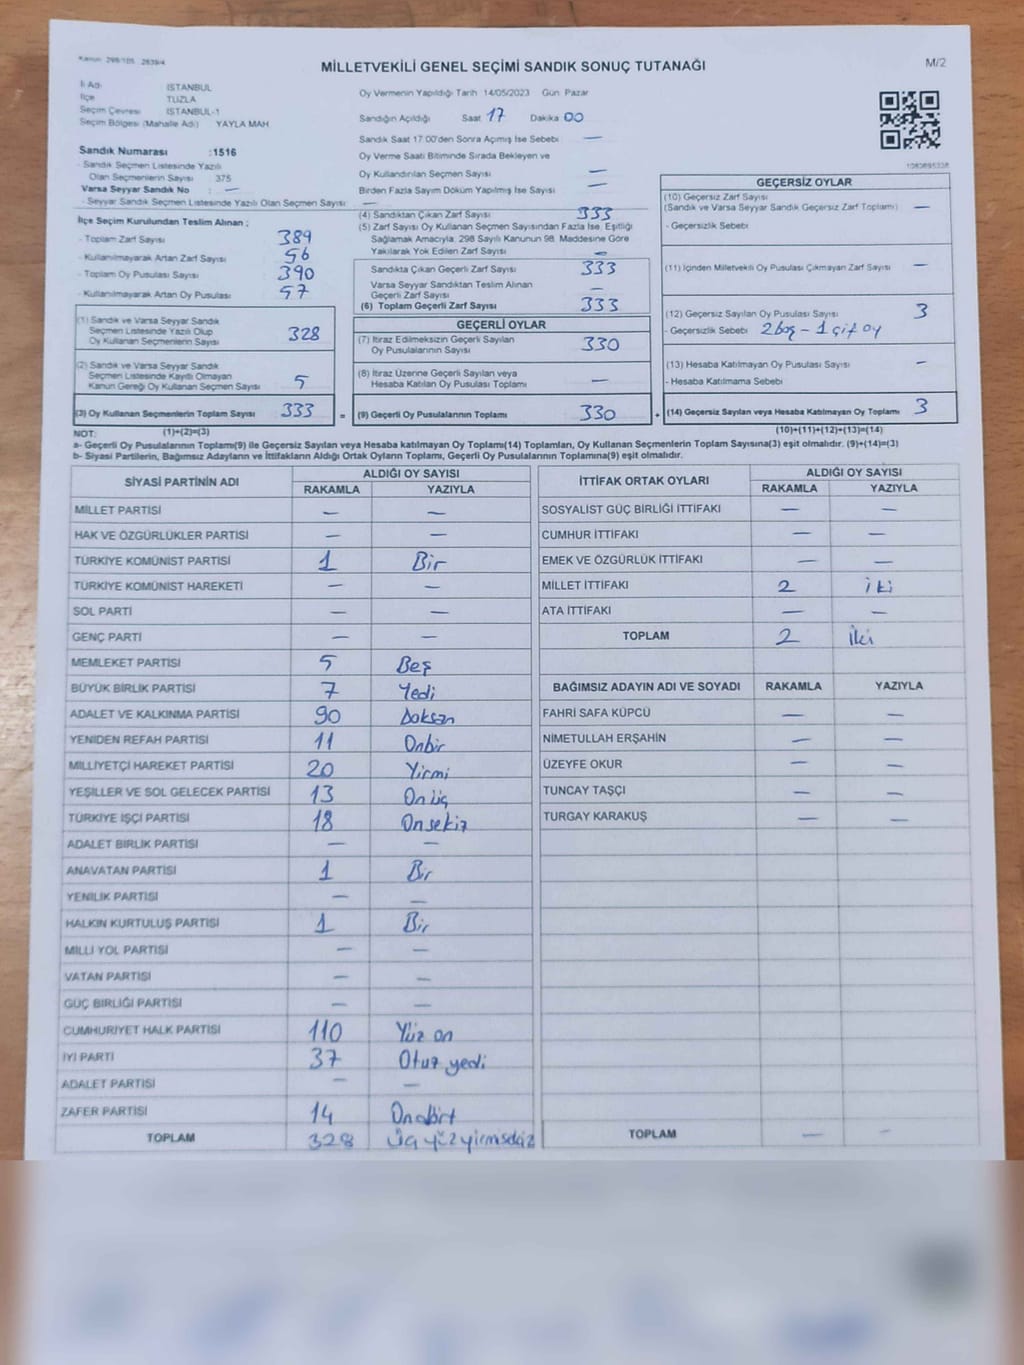 Kanun: 298/105 2839/4
MİLLETVEKİLİ GENEL SEÇİMİ SANDIK SONUÇ TUTANAĞI
M/2
İl Adı İSTANBUL
İlçe TUZLA
Seçim Çevresi İSTANBUL-1
Seçim Bölgesi (Mahalle Adı) YAYLA MAH
Oy Vermenin Yapıldığı Tarih 14/05/2023 Gün: Pazar
Sandığın Açıldığı Saat 17 Dakika 00
Sandık Saat 17:00'den Sonra Açılmış İse Sebebi —
Oy Verme Saati Bitiminde Sırada Bekleyen ve
Oy Kullandırılan Seçmen Sayısı —
Birden Fazla Sayım Döküm Yapılmış İse Sayısı —
Sandık Numarası :1516
- Sandık Seçmen Listesinde Yazılı
Olan Seçmenlerin Sayısı 375
Varsa Seyyar Sandık No : —
- Seyyar Sandık Seçmen Listesinde Yazılı Olan Seçmen Sayısı: —
İlçe Seçim Kurulundan Teslim Alınan ;
- Toplam Zarf Sayısı 389
- Kullanılmayarak Artan Zarf Sayısı 56
- Toplam Oy Pusulası Sayısı 390
- Kullanılmayarak Artan Oy Pusulası 57
(1) Sandık ve Varsa Seyyar Sandık
Seçmen Listesinde Yazılı Olup
Oy Kullanan Seçmenlerin Sayısı 328
(2) Sandık ve Varsa Seyyar Sandık
Seçmen Listesinde Kayıtlı Olmayan
Kanun Gereği Oy Kullanan Seçmen Sayısı 5
(3) Oy Kullanan Seçmenlerin Toplam Sayısı 333 =
(1)+(2)=(3)
(4) Sandıktan Çıkan Zarf Sayısı 333
(5) Zarf Sayısı Oy Kullanan Seçmen Sayısından Fazla İse, Eşitliği
Sağlamak Amacıyla; 298 Sayılı Kanunun 98. Maddesine Göre
Yakılarak Yok Edilen Zarf Sayısı —
Sandıkta Çıkan Geçerli Zarf Sayısı 333
Varsa Seyyar Sandıktan Teslim Alınan
Geçerli Zarf Sayısı —
(6) Toplam Geçerli Zarf Sayısı 333
GEÇERLİ OYLAR
(7) İtiraz Edilmeksizin Geçerli Sayılan
Oy Pusulalarının Sayısı 330
(8) İtiraz Üzerine Geçerli Sayılan veya
Hesaba Katılan Oy Pusulası Toplamı —
(9) Geçerli Oy Pusulalarının Toplamı 330 +
GEÇERSİZ OYLAR
(10) Geçersiz Zarf Sayısı
(Sandık ve Varsa Seyyar Sandık Geçersiz Zarf Toplamı) —
- Geçersizlik Sebebi
(11) İçinden Milletvekili Oy Pusulası Çıkmayan Zarf Sayısı —
(12) Geçersiz Sayılan Oy Pusulası Sayısı 3
- Geçersizlik Sebebi 2 boş - 1 çift oy
(13) Hesaba Katılmayan Oy Pusulası Sayısı —
- Hesaba Katılmama Sebebi
(14) Geçersiz Sayılan veya Hesaba Katılmayan Oy Toplamı 3
(10)+(11)+(12)+(13)=(14)
NOT:
a- Geçerli Oy Pusulalarının Toplamı(9) ile Geçersiz Sayılan veya Hesaba katılmayan Oy Toplamı(14) Toplamları, Oy Kullanan Seçmenlerin Toplam Sayısına(3) eşit olmalıdır. (9)+(14)=(3)
b- Siyasi Partilerin, Bağımsız Adayların ve İttifakların Aldığı Ortak Oyların Toplamı, Geçerli Oy Pusulalarının Toplamına(9) eşit olmalıdır.
SİYASİ PARTİNİN ADI ALDIĞI OY SAYISI
RAKAMLA YAZIYLA
MİLLET PARTİSİ — —
HAK VE ÖZGÜRLÜKLER PARTİSİ — —
TÜRKİYE KOMÜNİST PARTİSİ 1 Bir
TÜRKİYE KOMÜNİST HAREKETİ — —
SOL PARTİ — —
GENÇ PARTİ — —
MEMLEKET PARTİSİ 5 Beş
BÜYÜK BİRLİK PARTİSİ 7 Yedi
ADALET VE KALKINMA PARTİSİ 90 Doksan
YENİDEN REFAH PARTİSİ 11 Onbir
MİLLİYETÇİ HAREKET PARTİSİ 20 Yirmi
YEŞİLLER VE SOL GELECEK PARTİSİ 13 On üç
TÜRKİYE İŞÇİ PARTİSİ 18 Onsekiz
ADALET BİRLİK PARTİSİ — —
ANAVATAN PARTİSİ 1 Bir
YENİLİK PARTİSİ — —
HALKIN KURTULUŞ PARTİSİ 1 Bir
MİLLİ YOL PARTİSİ — —
VATAN PARTİSİ — —
GÜÇ BİRLİĞİ PARTİSİ — —
CUMHURİYET HALK PARTİSİ 110 Yüz on
İYİ PARTİ 37 Otuz yedi
ADALET PARTİSİ — —
ZAFER PARTİSİ 14 Ondört
TOPLAM 328 Üç yüz yirmisekiz
İTTİFAK ORTAK OYLARI ALDIĞI OY SAYISI
RAKAMLA YAZIYLA
SOSYALİST GÜÇ BİRLİĞİ İTTİFAKI — —
CUMHUR İTTİFAKI — —
EMEK VE ÖZGÜRLÜK İTTİFAKI — —
MİLLET İTTİFAKI 2 iki
ATA İTTİFAKI — —
TOPLAM 2 İki
BAĞIMSIZ ADAYIN ADI VE SOYADI RAKAMLA YAZIYLA
FAHRİ SAFA KÜPCÜ — —
NİMETULLAH ERŞAHİN — —
ÜZEYFE OKUR — —
TUNCAY TAŞÇI — —
TURGAY KARAKUŞ — —
TOPLAM — —